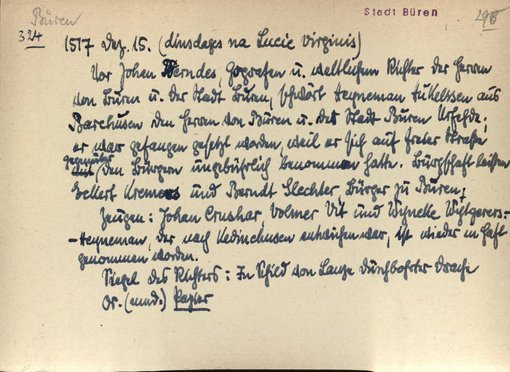 Büren
Stadt Büren
298
324
1517 Dez. 15. (dinsdages na Lucie virginis)
Vor Johan Berndes, Gografen u. weltlichem Richter der Herren
von Büren u. der Stadt Büren, schwört Heyneman Hukelssen aus
Barchusen den Herren von Büren u. der Stadt Büren Urfehde,
er war gefangen gesetzt worden, weil er sich auf freier Straße
gegenüber den Bürgern ungebührlich benommen hatte. Bürgschaft leisten
Gellert Kremers und Berndt Slechter Bürger zu Büren,
Zeugen: Johan Crushar, Volmer Vit und
Heyneman, der nach Medinchusen entwichen war, ist wieder in Haft
genommen worden.
Siegel des Richters: In Schild von Lanze durchbohrter Drache
Or. (mnd.) Papier